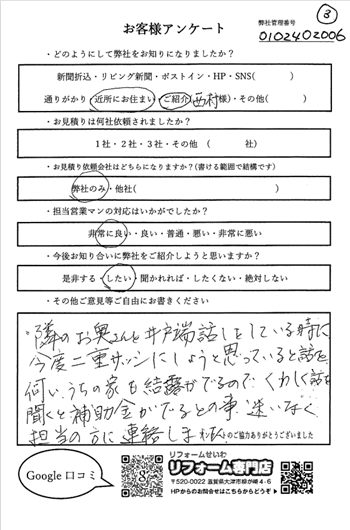 ③
お客様アンケート
弊社管理番号
0102402006
・どのようにして弊社をお知りになりましたか？
新聞折込・リビング新聞・ポストイン・HP・SNS(　　　)
通りがかり・近所にお住まい・ご紹介(西村様)・その他(　　　)
・お見積りは何社依頼されましたか？
1社・2社・3社・その他　(　　　社)
・お見積り依頼会社はどちらになりますか？(書ける範囲で結構です)
弊社のみ・他社(　　　)
・担当営業マンの対応はいかがでしたか？
非常に良い・良い・普通・悪い・非常に悪い
・今後お知り合いに弊社をご紹介しようと思いますか？
是非する・したい・聞かれれば・したくない・絶対しない
・その他ご意見等ご自由にお書きください
隣のお奥さんと井戸端話しをしている時に
今度二重サッシにしようと思っていると話を
伺い、うちの家も結露がでるので、くわしく話を
聞くと補助金がでるとの事、迷いなく
担当の方に連絡しました
アンケートのご協力ありがとうございました
Google 口コミ
リフォームせいわ
リフォーム専門店
〒520-0022 滋賀県大津市柳が崎4-6
HPからのお問合せはこちらからどうぞ